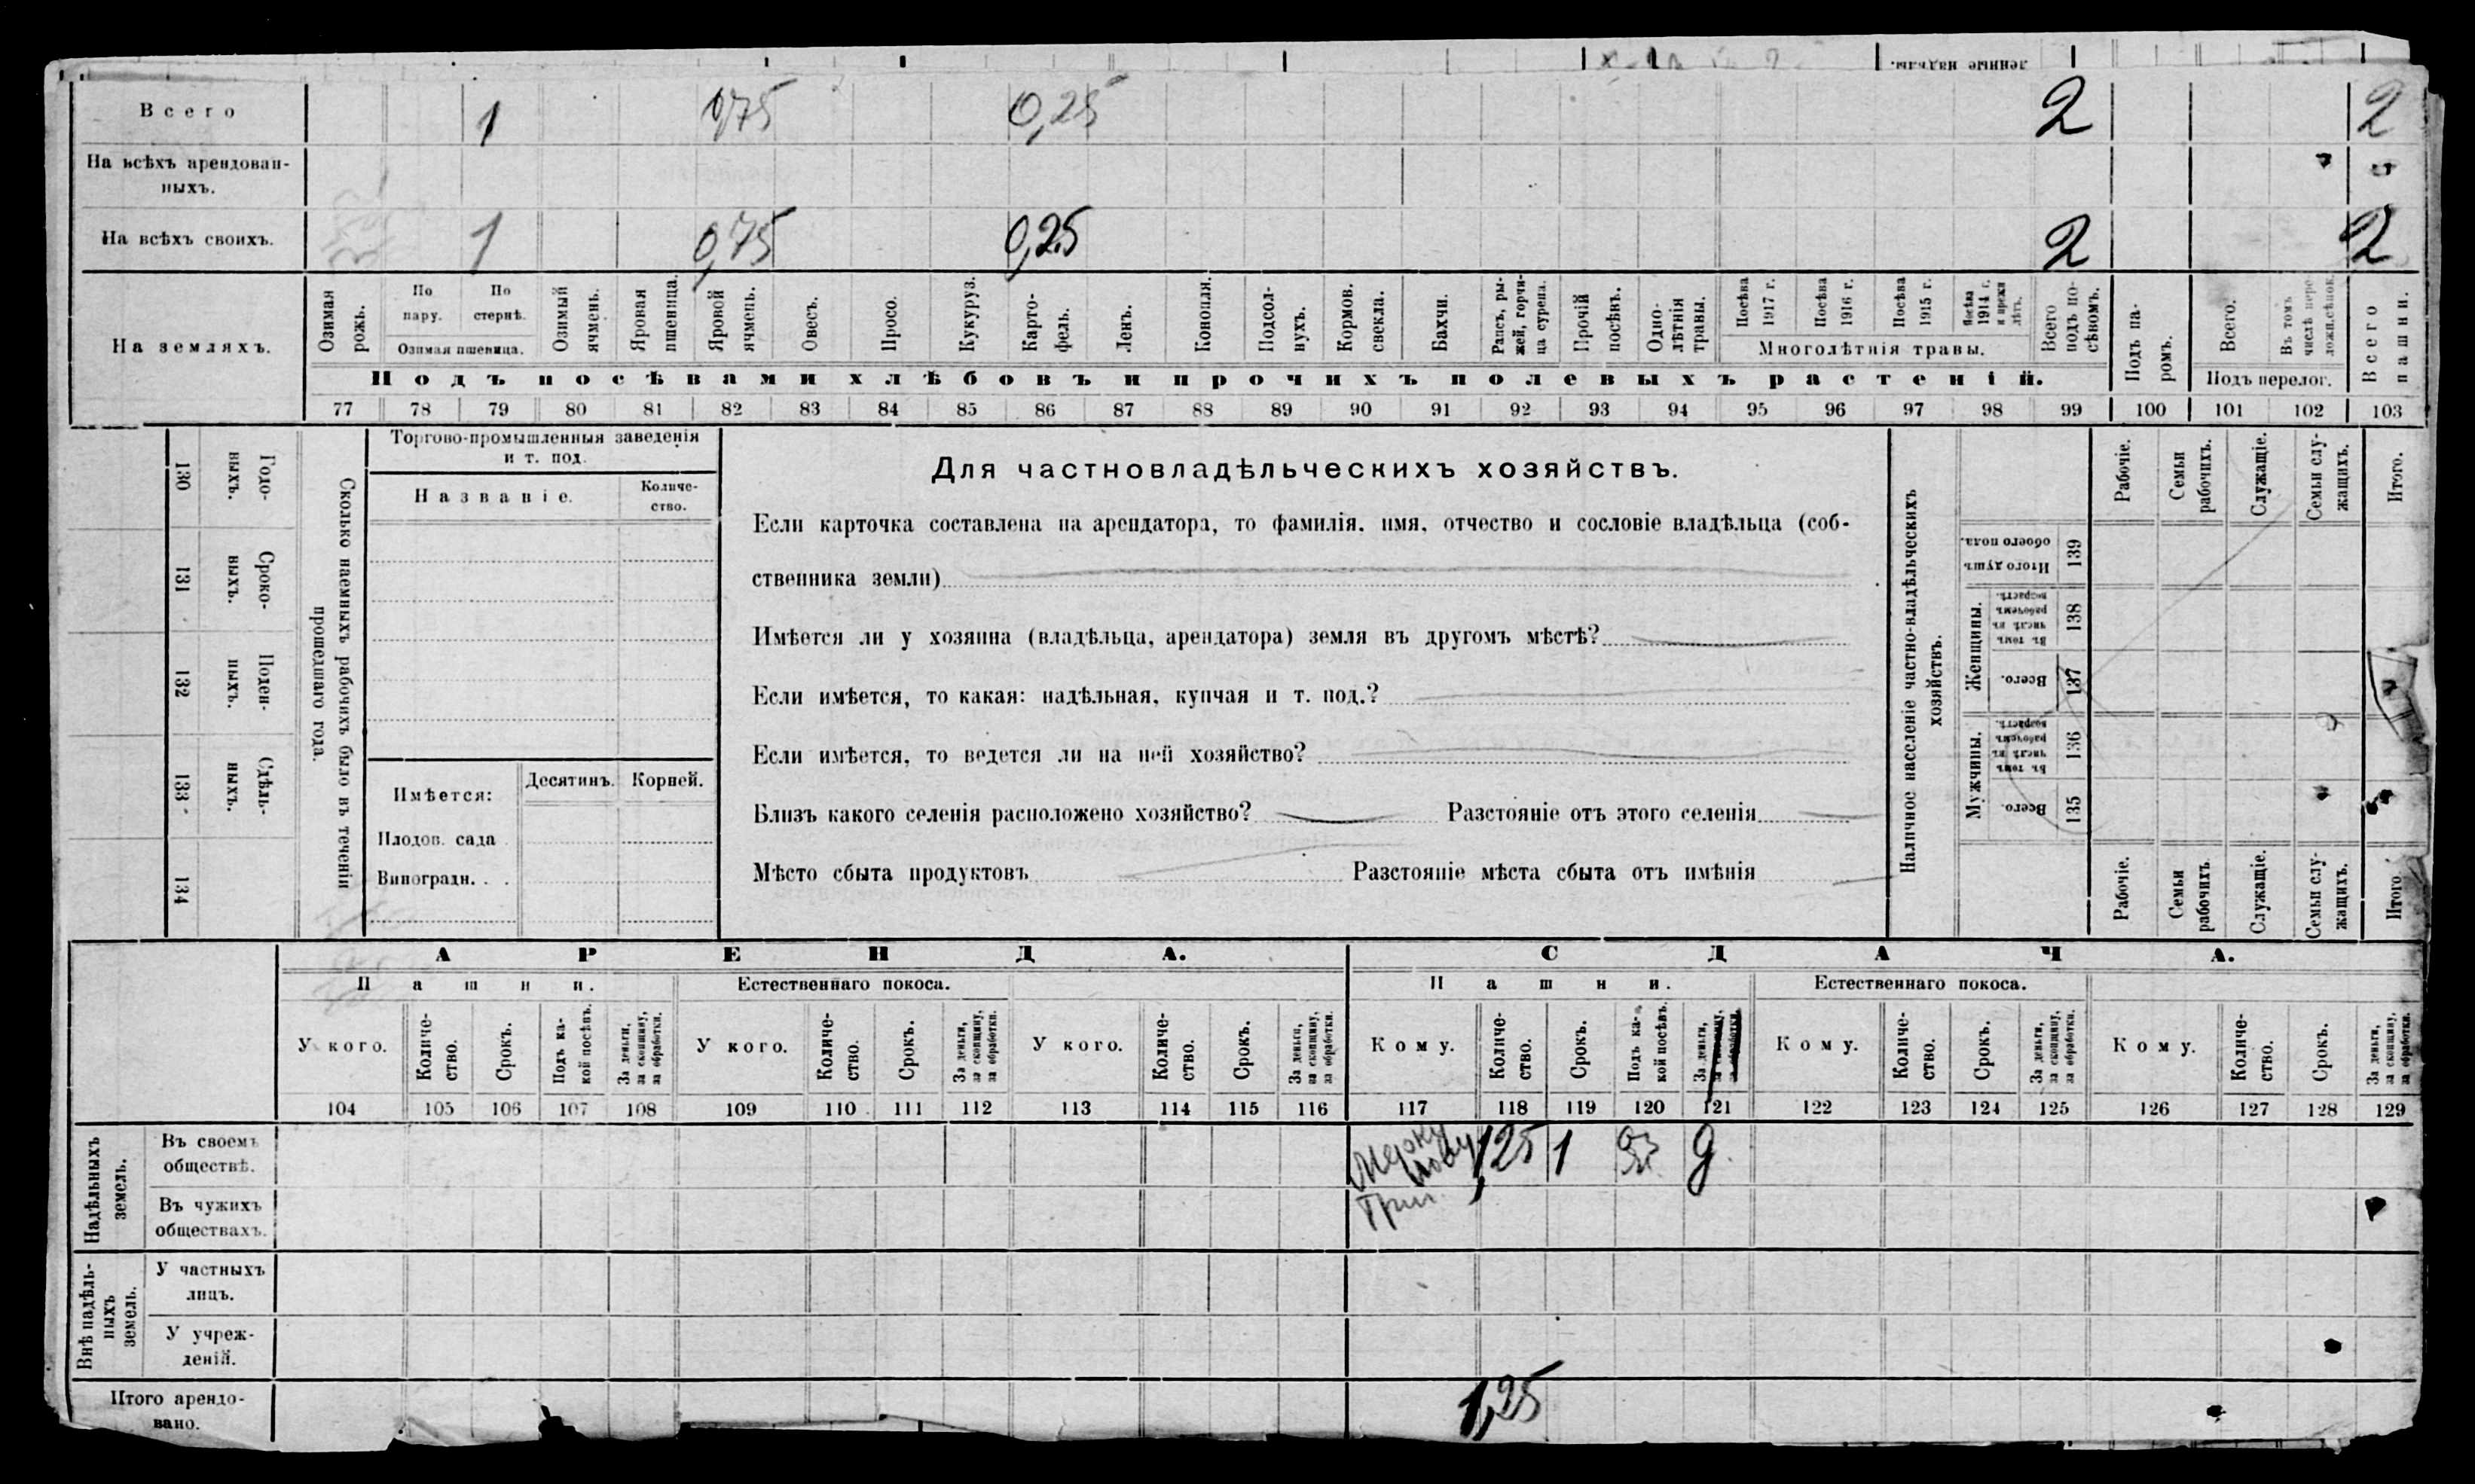 Всего 1 0,75 0,25 2 2
На всѣхъ арендован-
ныхъ.
На всѣхъ своихъ. 1 0,75 0,25 2 2
На земляхъ.
Озимая рожь.
По пару.
По стернѣ.
Озимая пшеница.
Озимый ячмень.
Яровая пшеница.
Яровой ячмень.
Овесъ.
Просо.
Кукуруз.
Карто-
фель.
Ленъ.
Конопля.
Подсол-
нухъ.
Кормов.
свекла.
Бахчи.
Рапсъ, ры-
жей, горчи-
ца сурепа.
Прочій
посѣвъ.
Одно-
лѣтнія
травы.
Посѣва
1917 г.
Посѣва
1916 г.
Посѣва
1915 г.
Посѣва
1914 г.
и прежн
лѣтъ.
Многолѣтнія травы.
Всего
подъ по-
сѣвомъ.
Подъ посѣвами хлѣбовъ и прочихъ полевыхъ растеній.
Подъ па-
ромъ.
Всего.
Въ томъ
числѣ
Подъ перелог.
Всего
пашни.
77 78 79 80 81 82 83 84 85 86 87 88 89 90 91 92 93 94 95 96 97 98 99 100 101 102 103
130 Годо-
ныхъ.
131 Сроко-
ныхъ.
132 Поден-
ныхъ.
133 Сдѣль-
ныхъ.
134
Сколько наемныхъ рабочихъ было въ теченіи
прошедшаго года.
Торгово-промышленныя заведенія
и т. под.
Названіе.
Количе-
ство.
Имѣется: Десятинъ. Корней.
Плодов. сада
Виноградн. . .
Для частновладѣльческихъ хозяйствъ.
Если карточка составлена на арендатора, то фамилія, имя, отчество и сословіе владѣльца (соб-
ственника земли)
Имѣется ли у хозяина (владѣльца, арендатора) земля въ другомъ мѣстѣ?
Если имѣется, то какая: надѣльная, купчая и т. под.?
Если имѣется, то ведется ли на ней хозяйство?
Близъ какого селенія расположено хозяйство? Разстояніе отъ этого селенія
Мѣсто сбыта продуктовъ Разстояніе мѣста сбыта отъ имѣнія
Наличное населеніе частно-владѣльческихъ
хозяйствъ.
Рабочіе.
Семьи
рабочихъ.
Служащіе.
Семьи слу-
жащихъ.
Итого.
Итого душъ
обоего пола.
139
Женщины.
Въ томъ
числѣ въ
рабочемъ
возрастѣ.
138
Всего.
137
Мужчины.
Въ томъ
числѣ въ
рабочемъ
возрастѣ.
136
Всего.
135
Рабочіе.
Семьи
рабочихъ.
Служащіе.
Семьи слу-
жащихъ.
Итого
АРЕНДА.
СДАЧА.
Пашни.
Естественнаго покоса.
Пашни.
Естественнаго покоса.
У кого.
Количе-
ство.
Срокъ.
Подъ ка-
кой посѣвъ.
За деньги,
за скопщину,
за обработки.
У кого.
Количе-
ство.
Срокъ.
За деньги,
за скопщину,
за обработки.
У кого.
Количе-
ство.
Срокъ.
За деньги,
за скопщину,
за обработки.
Кому.
Количе-
ство.
Срокъ.
Подъ ка-
кой посѣвъ.
За деньги,
за скопщину,
за обработки.
Кому.
Количе-
ство.
Срокъ.
За деньги,
за скопщину,
за обработки.
Кому.
Количе-
ство.
Срокъ.
За деньги,
за скопщину,
за обработки.
104 105 106 107 108 109 110 111 112 113 114 115 116 117 118 119 120 121 122 123 124 125 126 127 128 129
Надѣльныхъ
земель.
Въ своемъ
обществѣ.
1,25 1 д
Въ чужихъ
обществахъ.
Внѣ надѣль-
ныхъ
земель.
У частныхъ
лицъ.
У учреж-
деній.
Итого арендо-
вано.
1,25